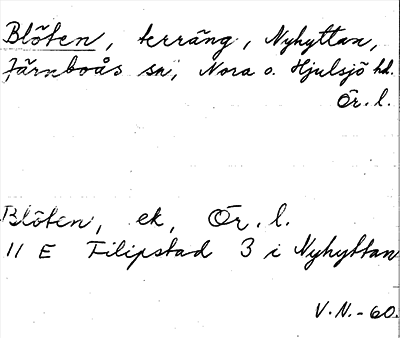 Blöten, terräng, Nyhyttan,
Järnboås sn, Nora o. Hjulsjö hd.
Ör. l.
Blöten, ek, Ör. l.
11 E Filipstad 3 i Nyhyttan
V.N.-60.